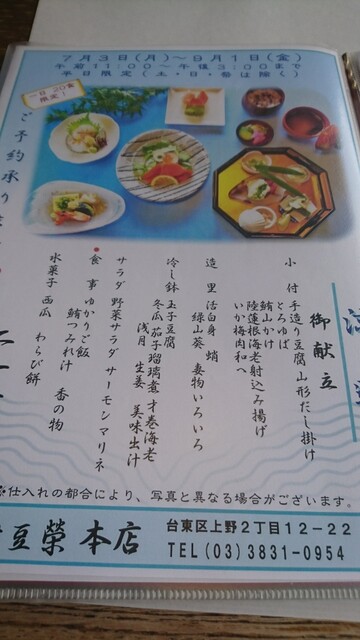 7月3日(月)～9月1日(金)
午前11:00～午後3:00まで
平日限定(土・日・祭は除く)
一日20食
限定!
ご予約承り
御献立
小付 手造り豆腐 山形だし掛け
とろゆば
鮪山かけ
陸蓮根海老射込み揚げ
いか梅肉和へ
造里 活白身 蛸
緑山葵 妻物いろいろ
冷し鉢 玉子豆腐
冬瓜 茄子瑠璃煮 才巻海老
浅月 生姜 美味出汁
サラダ 野菜サラダ サーモンマリネ
食事 ゆかりご飯
鮪つみれ汁 香の物
水菓子 西瓜 わらび餅
※仕入れの都合により、写真と異なる場合がございます。
豆榮 本店
台東区上野2丁目12-22
TEL(03)3831-0954